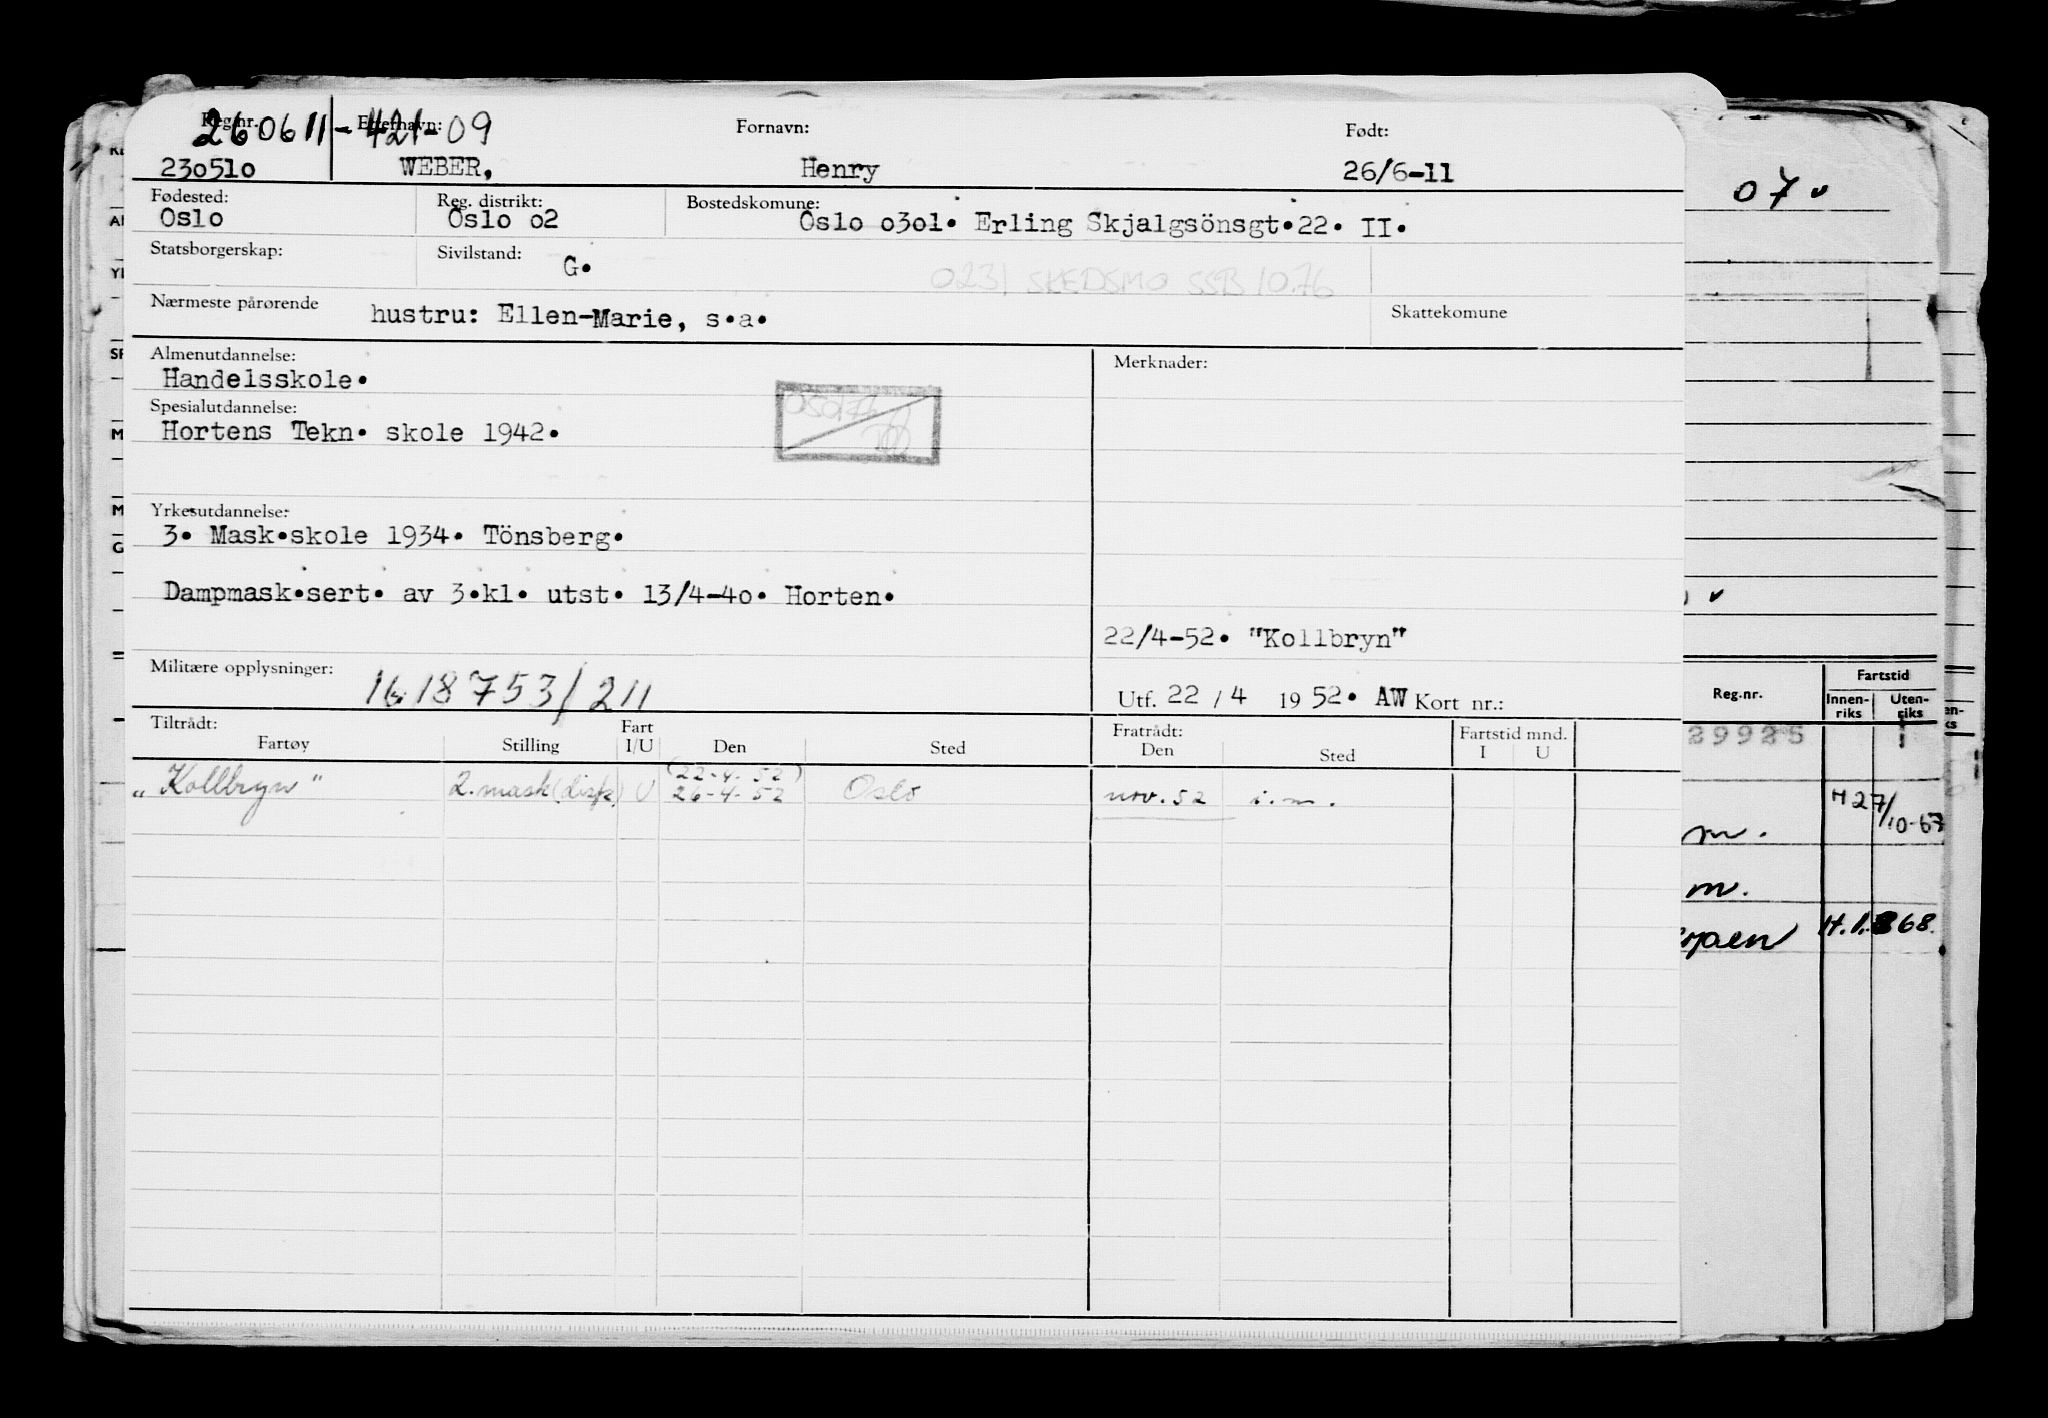 260611-421-09
Reg.nr. Etternavn: Fornavn: Født:
230510 WEBER, Henry 26/6-11
Fødested: Reg. distrikt: Bostedskomune:
Oslo Oslo 02 Oslo 0301. Erling Skjalgsönsgt.22. II.
Statsborgerskap: Sivilstand: G.
0231 SKEDSMO SSB 10.76
Nærmeste pårørende hustru: Ellen-Marie, s.a. Skattekomune
Almenutdannelse: Merknader:
Handelsskole.
Spesialutdannelse:
Hortens Tekn. skole 1942.
Yrkesutdannelse:
3. Mask.skole 1934. Tönsberg.
Dampmask.sert. av 3.kl. utst. 13/4-40. Horten.
22/4-52. "Kollbryn"
Militære opplysninger: 18753/211
Utf. 22 / 4 19 52. AW Kort nr.:
Tiltrådt: Fart Fratrådt: Fartstid mnd.
Fartøy Stilling I/U Den Sted Den Sted I U
(22-4-52)
"Kollbryn" 2.mask U 26-4-52 Oslo nov. 52 i.m.
07
Reg.nr. Fartstid
Innen-riks Uten-riks
29925
H 27/10-67
m.
m.
H.1. 68.